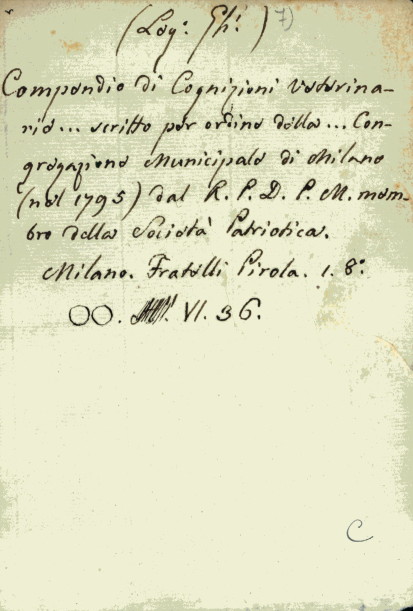 (Log: Gh: ) 7)
Compendio di Cognizioni Veterina-
rie... scritto per ordine della... Con-
gregazione Municipale di Milano
(nel 1795) dal R. P. D. P. M. mem-
bro della Società Patriotica.
Milano. Fratelli Pirola. 1. 8º
OO. VI. 36.
C